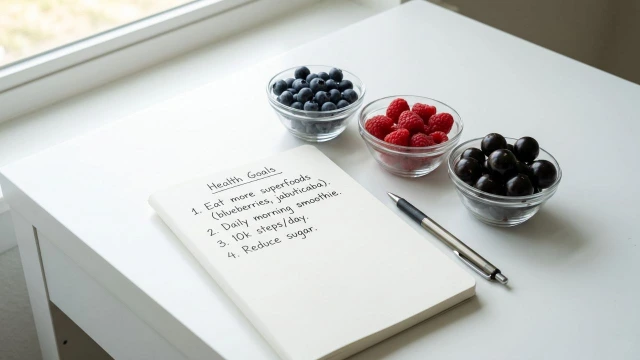 Health Goals
1. Eat more superfoods
(blueberries, jabuticaba).
2. Daily morning smoothie.
3. 10k steps/day.
4. Reduce sugar.